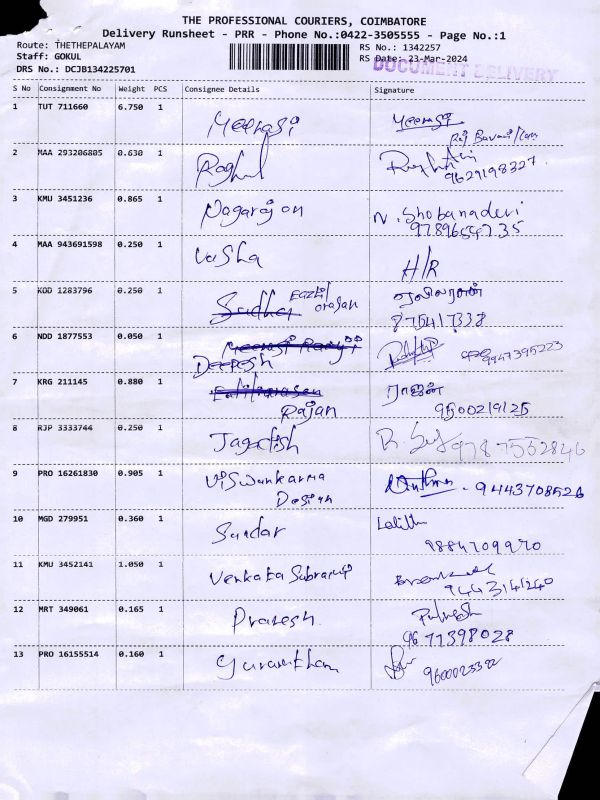 THE PROFESSIONAL COURIERS, COIMBATORE
Delivery Runsheet - PRR - Phone No.:0422-3505555 - Page No.:1
Route: THETHEPALAYAM
Staff: GOKUL
DRS No.: DCJB134225701
RS No.: 1342257
RS Date: 23-Mar-2024
DOCUMENT DELIVERY
S No Consignment No Weight PCS Consignee Details Signature
1 TUT 711660 6.750 1 Meerasi Meerasi
2 MAA 293206805 0.630 1 Raghul
9629198327
3 KMU 3451236 0.865 1 Nagarajan N. Shobanadevi
9789654735
4 MAA 943691598 0.250 1 Varsha H/R
5 KOD 1283796 0.250 1 Sudha எழிலரசன்
875417338
6 NDD 1877553 0.050 1 Deepesh 9947395223
7 KRG 211145 0.880 1 Rajan ராஜன்
9500219125
8 RJP 3333744 0.250 1 Jagadish 9787552846
9 PRO 16261830 0.905 1 Viswankarma
Design 9443708526
10 MGD 279951 0.360 1 Sundar Lalith
9884709970
11 KMU 3452141 1.050 1 Venkata Subramani
9443141240
12 MRT 349061 0.165 1 Pravesh
9677398028
13 PRO 16155514 0.160 1